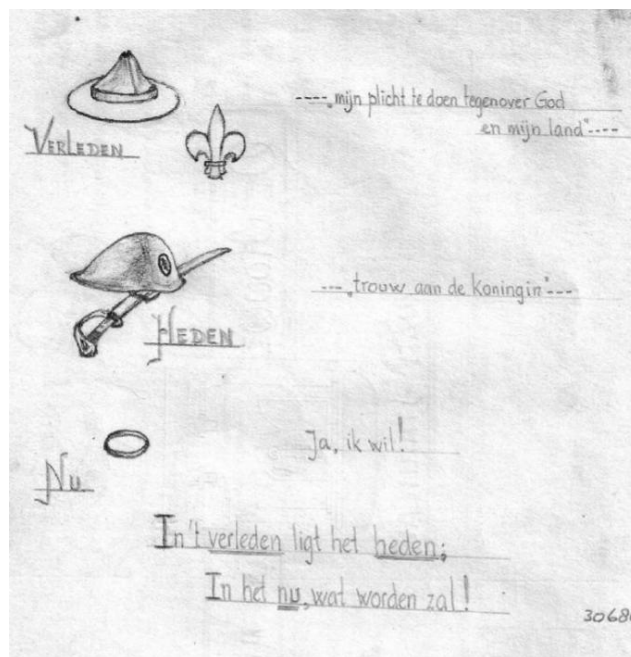 ----„mijn plicht te doen tegenover God
en mijn land"----
VERLEDEN
---„trouw aan de koningin"---
HEDEN
Ja, ik wil!
NU.
In 't verleden ligt het heden;
In het nu, wat worden zal!